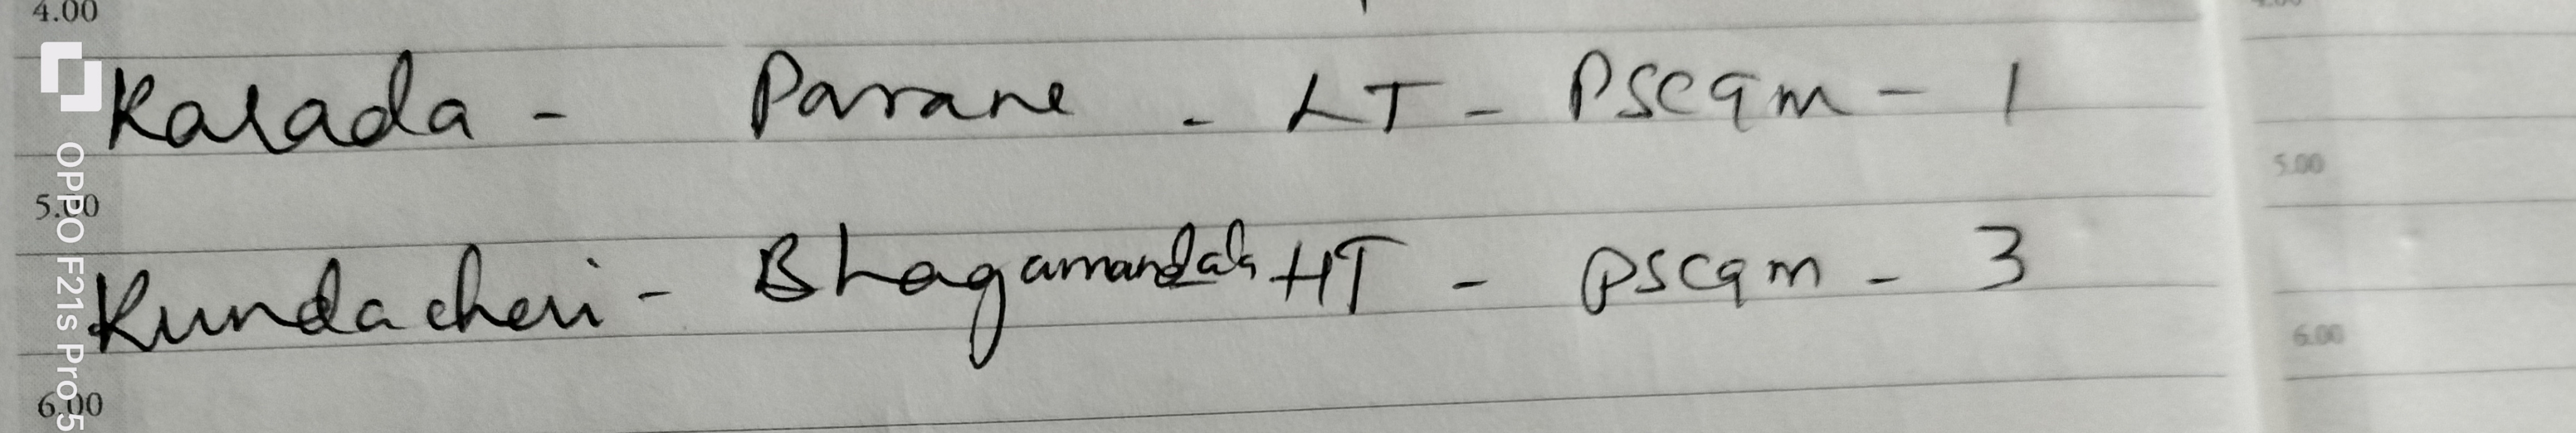 4.00
Karada - Parane - LT - PSCqm - 1
5.00
Kundacheri - Bhagamandala HT - PSCqm - 3
6.00
5.00
6.00
OPPO F21s Pro 5